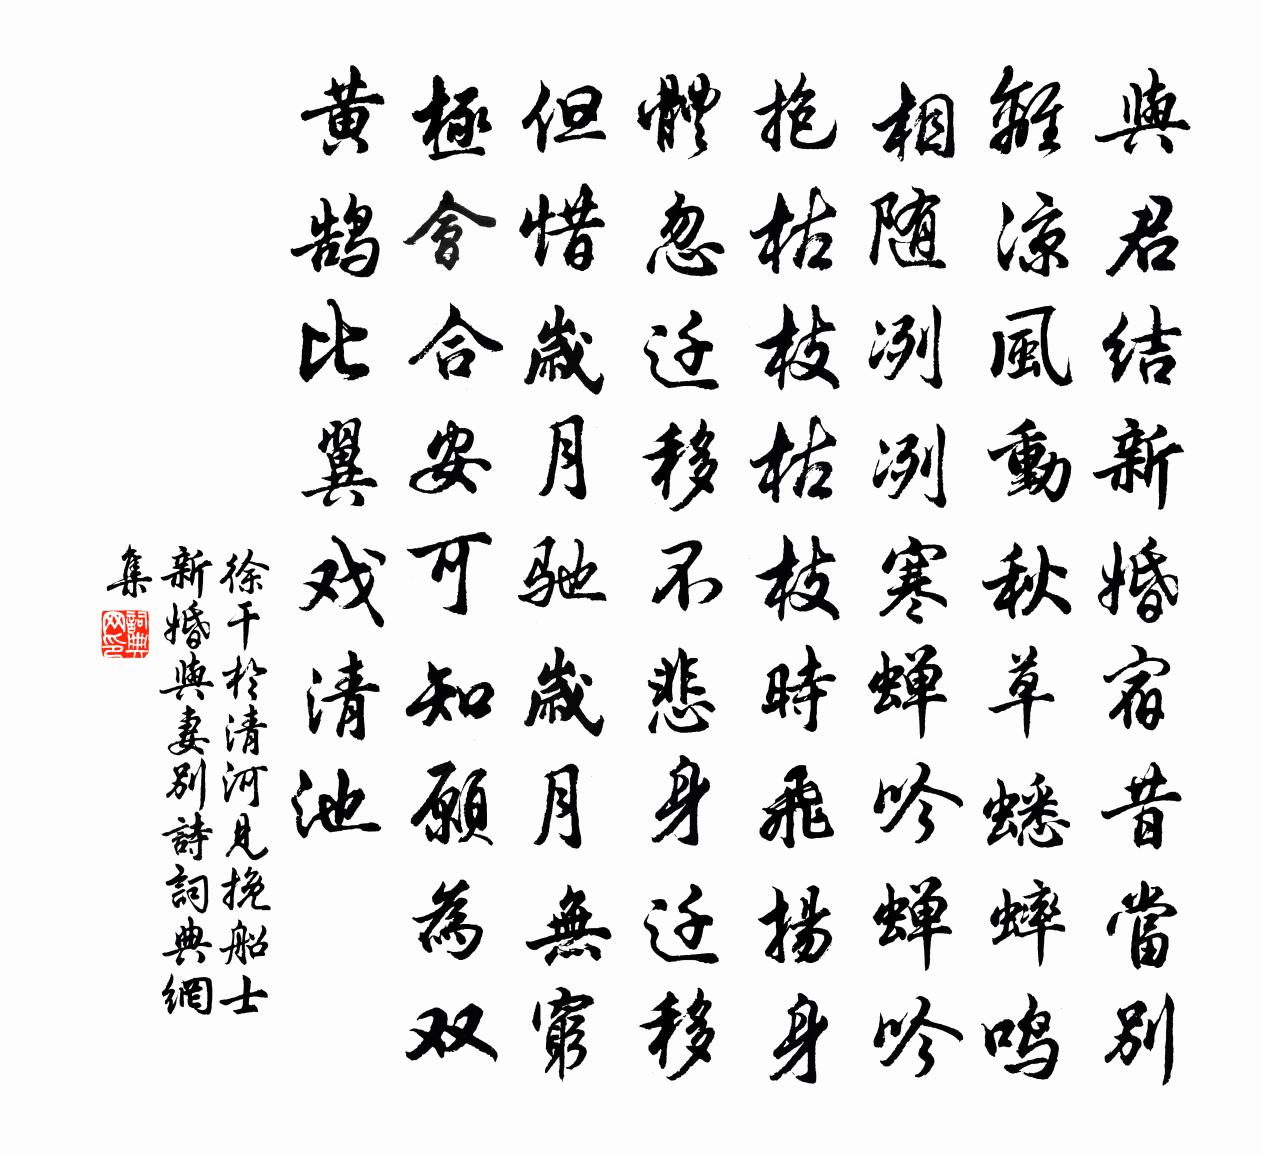 與君結新婚宿昔當別
離涼風動秋草蟋蟀鸣
相随冽冽寒蝉吟蝉吟
抱枯枝枯枝時飛揚身
體忽迁移不悲身迁移
但惜歲月驰歲月無窮
極會合安可知願為双
黄鹄比翼戏清池
徐干於清河見挽船士
新婚與妻別詩詞典網
集
詞典網印